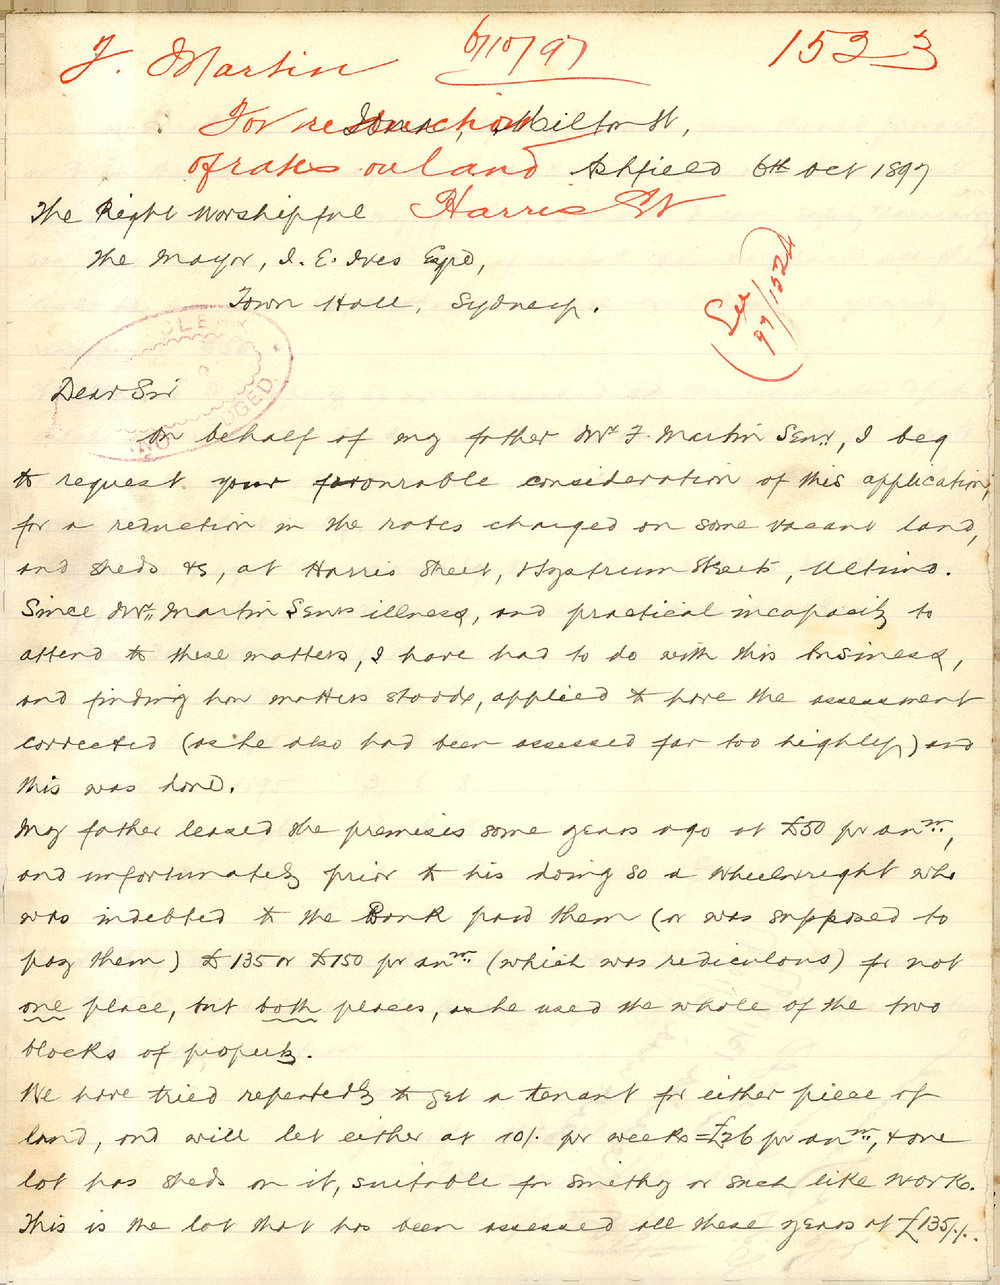 F. Martin 6/10/97 1523
For reduction Iona, Milton St,
of rates on land Ashfield 6th Oct 1897
The Right Worshipful Harris St
The Mayor, I. E. Ives Esqe,
Town Hall, Sydney.
See
97/1524
CLERK
Dear Sir
On behalf of my father Mr F. Martin Senr, I beg
to request your favourable consideration of this application,
for a reduction in the rates charged on some vacant land,
and sheds &c, at Harris Street, Street, Ultimo.
Since Mr. Martin Senrs illness, and practical incapacity to
attend to these matters, I have had to do with this business,
and finding how matters stoode, applied to have the assessment
corrected (as he also had been assessed far too highly) and
this was done.
My father leased the premises some years ago at £50 pr anm,
and unfortunately prior to his doing so a wheelwright who
was indebted to the Bank paid them (or was supposed to
pay them) £135 or £150 pr anm (which was rediculous) for not
one place, but both places, as he used the whole of the two
blocks of property.
We have tried repeatedly to get a tenant for either piece of
land, and will let either at 10/. per week = £26 pr anm, & one
lot has sheds on it, suitable for smithy or such like work.
This is the lot that has been assessed all these years at £135/./.